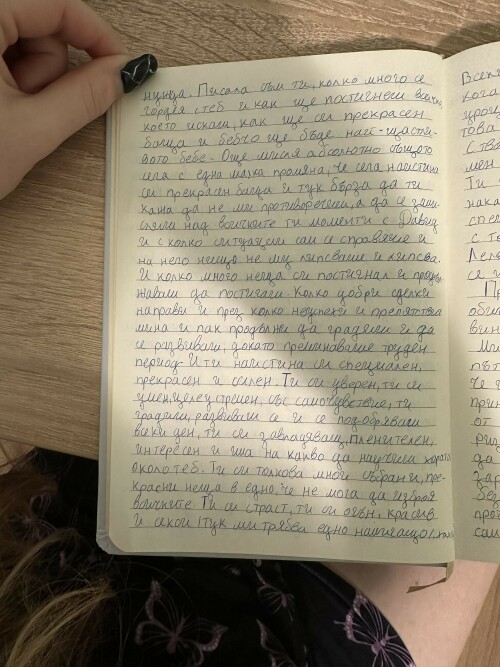 нужда. Писала съм ти, колко много се
гордея с теб и как ще постигнеш всичко,
което искаш, как ще си прекрасен
баща и бебчо ще бъде най-щастли-
вото бебе. Още мисля абсолютно същото
сега с една малка промяна, че сега наистина
си прекрасен баща и тук бърза да ти
кажа да не ми противоречиш, а да се зами-
слиш над всичките ти моменти с Давид
и с колко ситуации сам се справяше и
на него нищо не му липсваше и липсва.
И колко много неща си постигнал и продъл-
жаваш да постигаш. Колко добри сделки
направи и през колко неуспехи и препятствия
мина и пак продължи да градиш и да
се развиваш, докато преминаваше труден
период. И ти наистина си специален,
прекрасен и силен. Ти си уверен, ти си
умен, целеустремен, със самочувствие, ти
градиш, развиваш се и се подобряваш
всеки ден, ти си завладяващ, пленителен,
интересен и има на какво да научиш хората
около теб. Ти си толкова много събрани, пре-
красни неща в едно, че не мога да изброя
всичките. Ти си страст, ти си огън, красив
и секси (тук ми трябва едно намигащо
Всеки
кога
това
мен
Ти
нака
с те
се и
вин
път
че
при
от
да
зар
без
сам